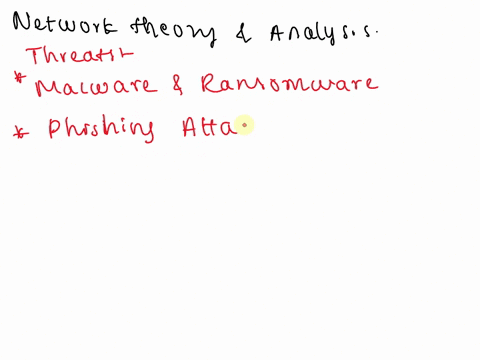 Network theory & Analysis.
Threats
* Malware & Ransomware
* Phishing Atta